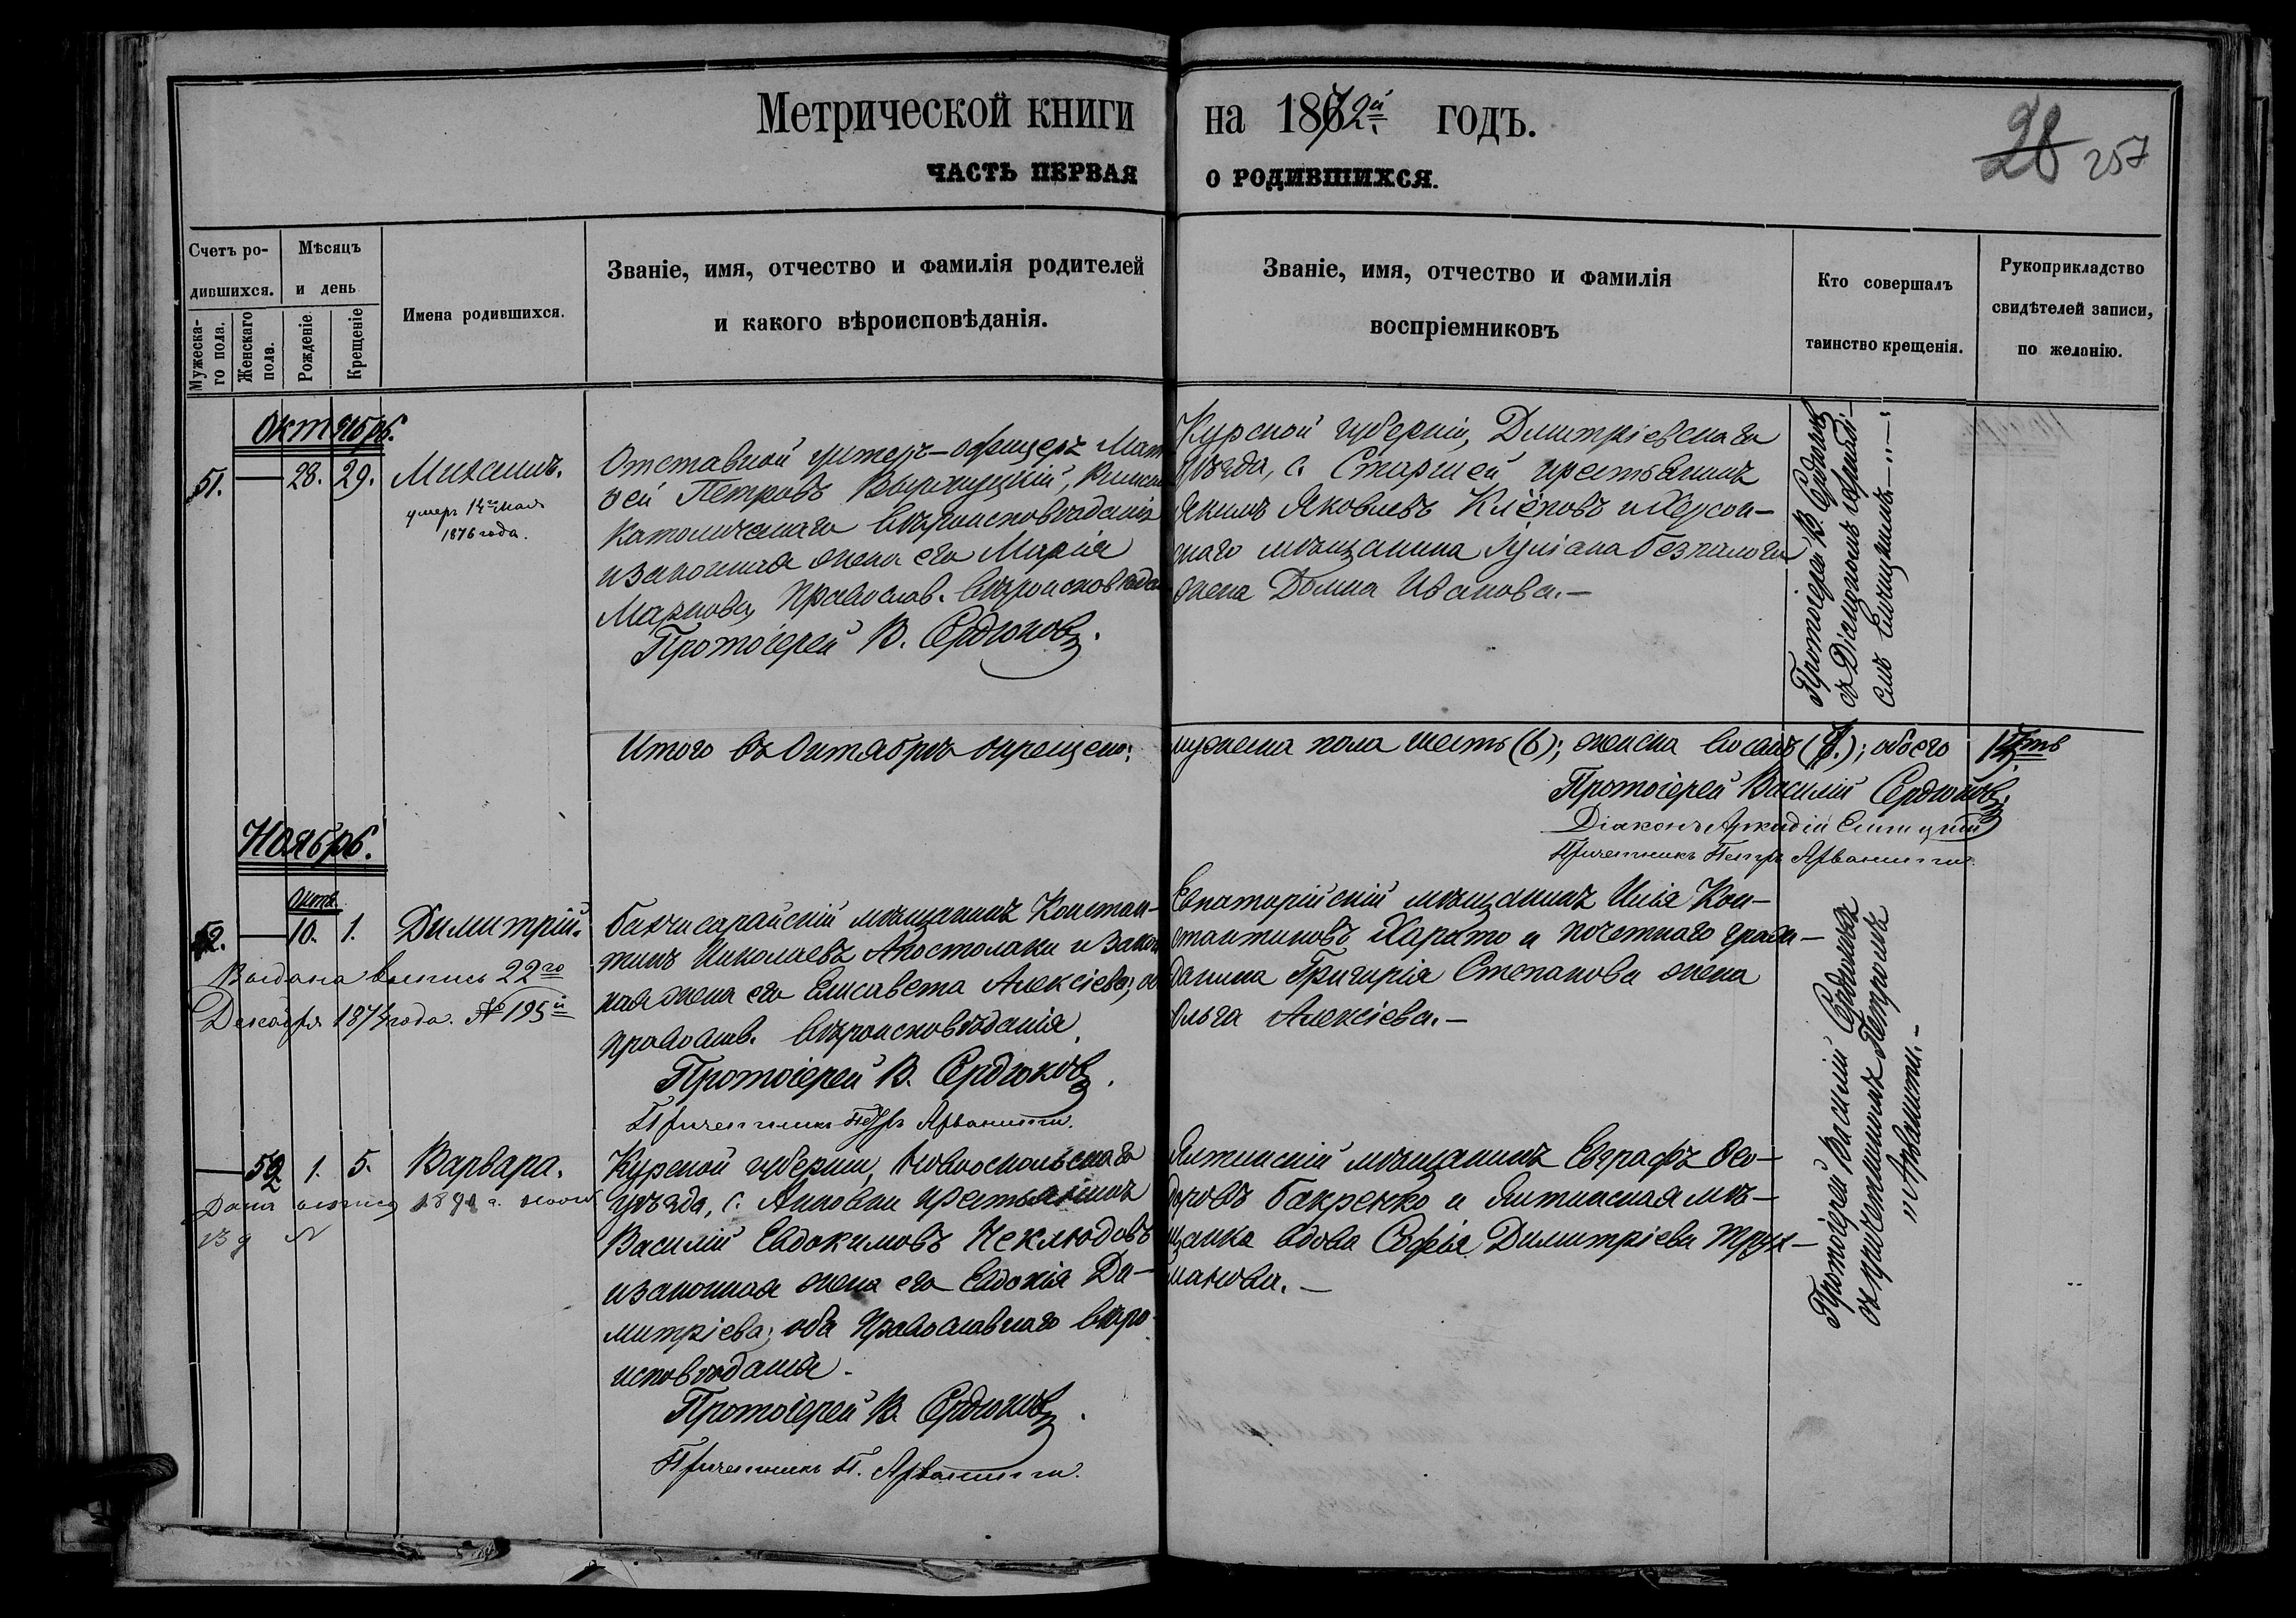 Метрической книги на 1872й годъ.
ЧАСТЬ ПЕРВАЯ О РОДИВШИХСЯ.
28 257
Счетъ ро-
дившихся.
Мужеска-
го пола.
Женскаго
пола.
Мѣсяцъ
и день
Рожденіе.
Крещеніе
Имена родившихся.
Званіе, имя, отчество и фамилія родителей
и какого вѣроисповѣданія.
Званіе, имя, отчество и фамилія
воспріемниковъ
Кто совершалъ
таинство крещенія.
Рукоприкладство
свидѣтелей записи,
по желанію.
Октябрь.
51. — 28. 29. Михаилъ.
умеръ 14го Мая
1876 года.
Отставной унтеръ-офицеръ Мат
вей Петровъ
католическаго вѣроисповѣданія
и законная жена его Марія
Маркова, Православ. вѣроисповѣда
Протоіерей В. Сердюковъ.
Курской губерніи, Дмитріевскаго
уѣзда, с. Старшей крестьянинъ
Якимъ Яковлевъ Клёновъ и Херсон-
скаго мѣщанина Луліана Безпалого
жена Домна Иванова.—
Протоіерей В. Сердюковъ
съ Діакономъ Аркадіе-
мъ Синицкимъ.
Итого въ Октябрѣ окрещено: мужеска пола шесть (6); женска восемь (8.); обоего 14ть
Протоіерей Василій Сердюковъ.
Діаконъ Аркадій Синицкій
Причетникъ Петръ Арванитти.
Ноябрь.
Октя.
52. — 10. 1. Димитрій.
Выдана выпись 22го
Декабря 1874 года. № 195й
Бахчисарайскій мѣщанинъ Констан-
тинъ Николаевъ Апостолаки и закон
ная жена его Елисавета Алексіева; об
православ. вѣроисповѣданія.
Протоіерей В. Сердюковъ.
Причетникъ Петръ Арванитти.
Евпаторійскій мѣщанинъ Илія Кон-
стантиновъ Харито и почетнаго граж-
данина Григорія Степанова жена
Ольга Алексіева.—
— 52 1. 5. Варвара.
Дана выпись
Курской губерніи, Новооскольскаго
уѣзда, с. крестьянинъ
Василій Евдокимовъ Неклюдовъ
и законная жена его Евдокія Ди-
митріева; оба Православнаго вѣро-
исповѣданія.
Протоіерей В. Сердюковъ.
Причетникъ П. Арванитти.
Ялтинскій мѣщанинъ Евграфъ Ѳео-
доровъ Бакренко и Ялтинская мѣ-
щанка вдова Софія Димитріева Трух-
манова.—
Протоіерей Василій Сердюковъ
съ причетникомъ Петромъ
Арванитти.—